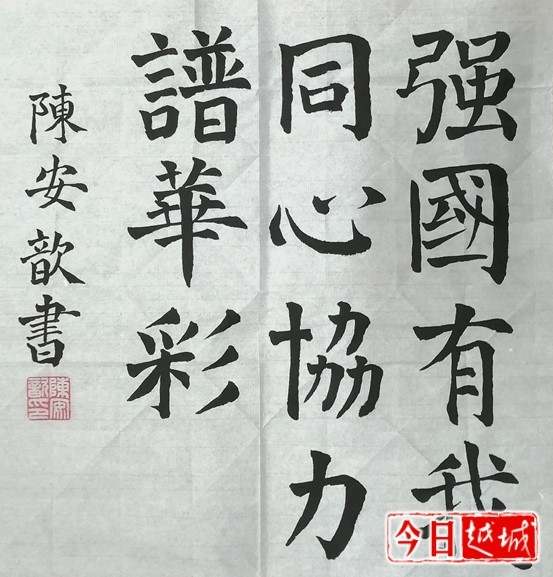 强國有我
同心協力
譜華彩
陳安歆書
陳安歆印
今日越城